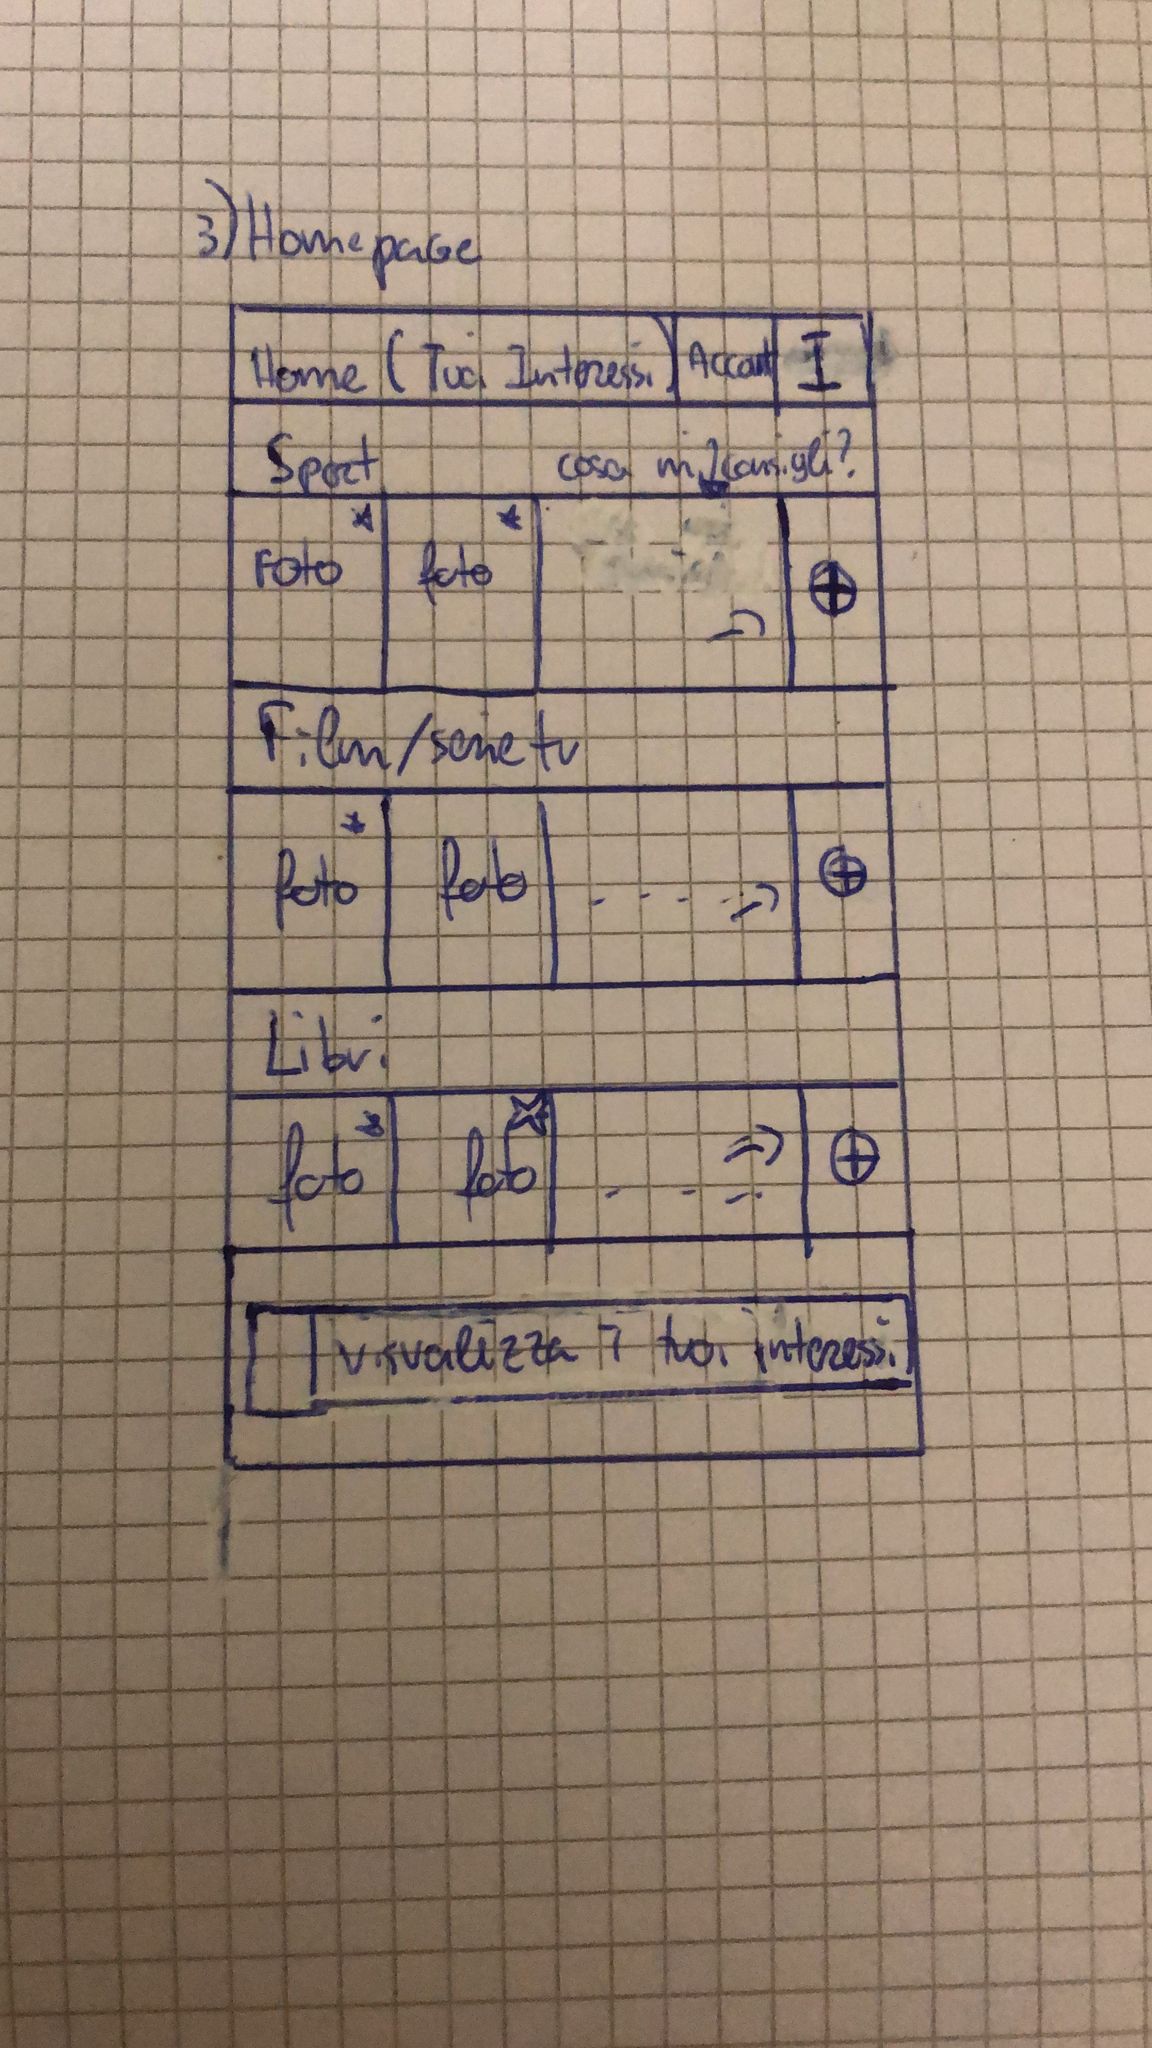 3) Homepage
Home (Tuoi Interessi) Account I
Sport cosa mi consigli?
Foto foto
Film/serie tv
foto foto
Libri
foto foto
visualizza i tuoi interessi